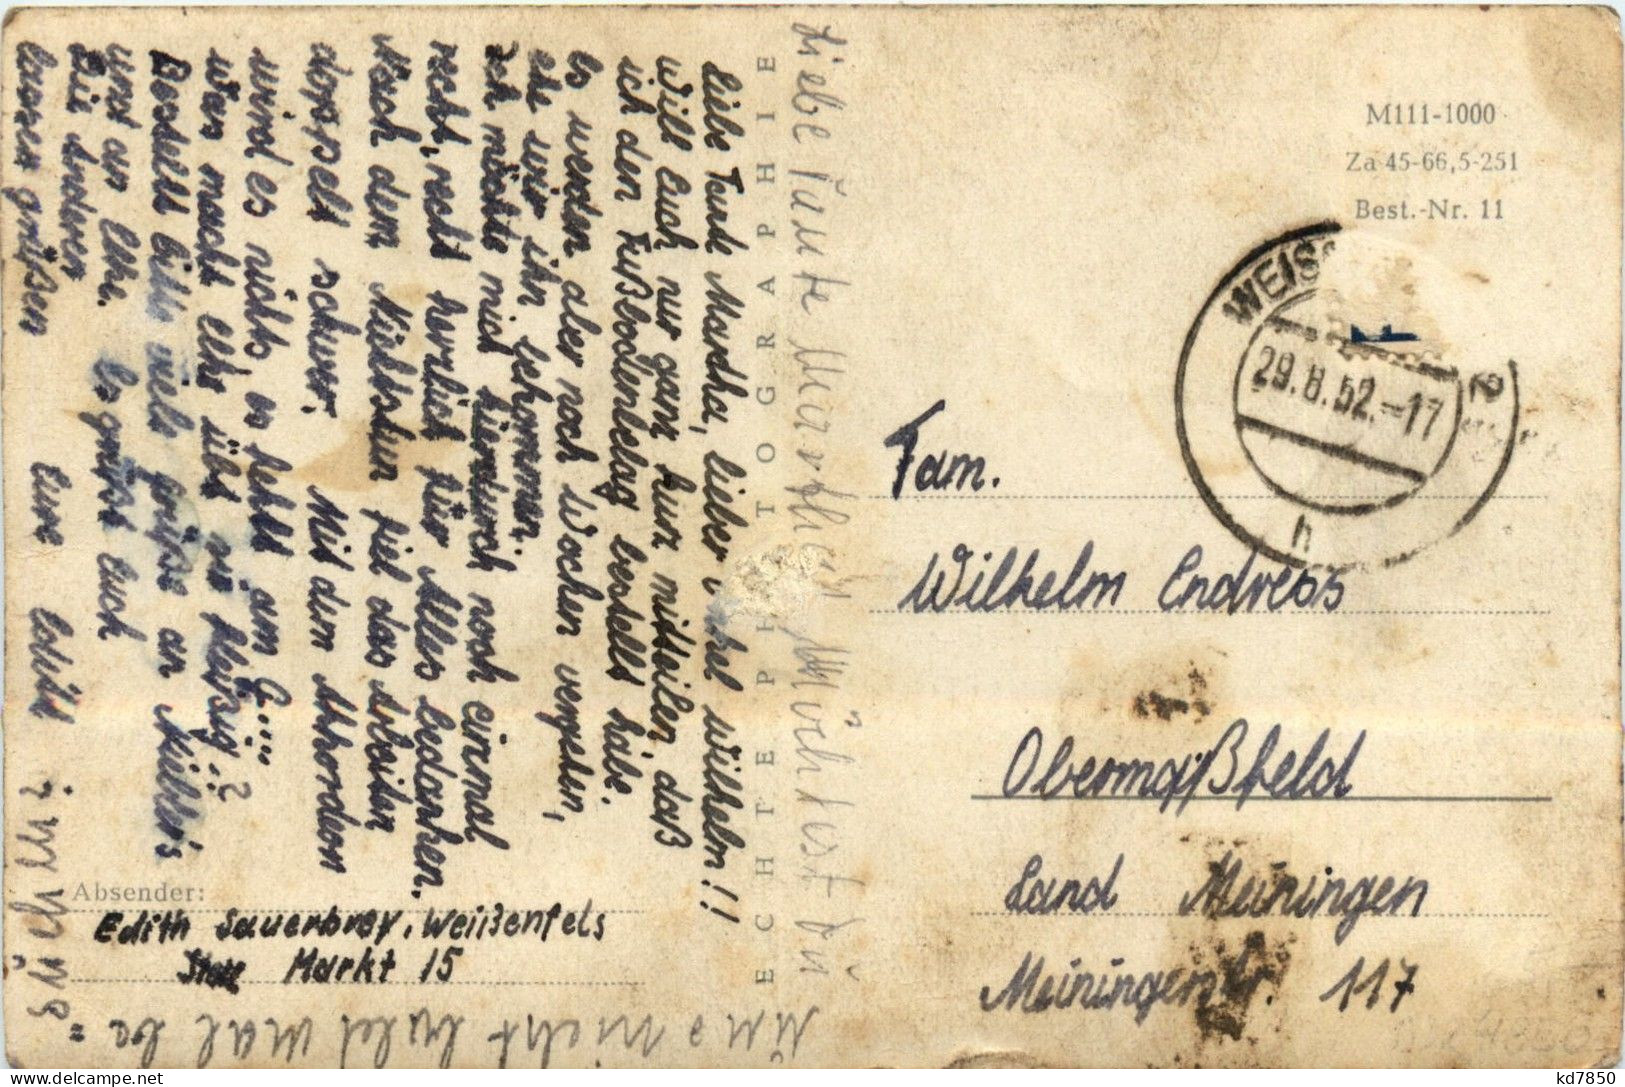 Liebe Tante Martha, lieber Onkel Wilhelm!!
Will Euch nur ganz kurz mitteilen daß
ich den Fußbodenbelag bestellt habe.
Es werden aber noch Wochen vergehen,
ehe wir ihn bekommen.
Ich möchte mich hierdurch noch einmal
recht, recht herzlich für Alles bedanken.
Nach dem Nichtstun fiel das Arbeiten
doppelt schwer. Mit dem Akkordeon
wird es nichts, es fehlt am G....
Was macht Ekhs übt es fleißig?
Bestellt bitte viele Grüße an Müller's
und an Ekhs. Es grüßt Euch
Die anderen
lassen grüßen Eure Edith
Liebe Tante Martha Möchtest Du
uns nicht bald mal be =
Absender:
Edith Sauerbrey, Weißenfels
Markt 15
ECHTE PHOTOGRAPHIE
M111-1000
Za 45-66,5-251
Best.-Nr. 11
WEISS
29.8.52.-17
2
h
Fam.
Wilhelm Endress
Obermaßfeld
Land Meiningen
Meiningerstr. 117
kd7850
delcampe.net